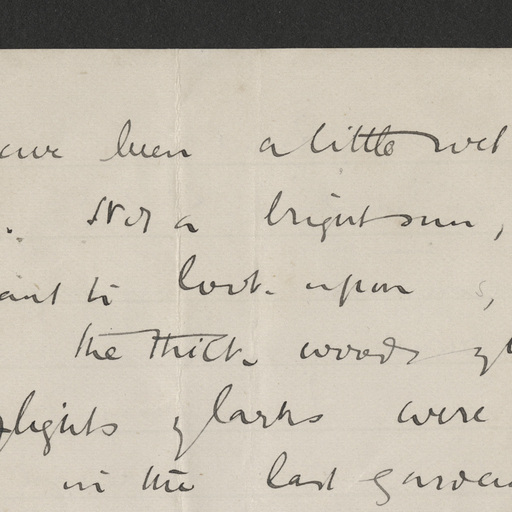 been a little wet
. Not a bright sun,
to look upon ,
the thick woods
flights of larks were
in the last